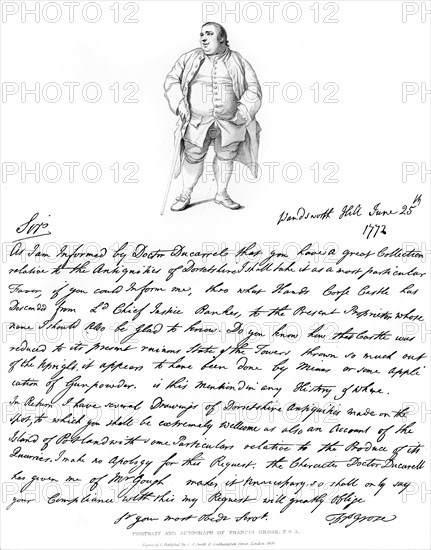 Wandsworth Hill June 25th
1772
Sir,
As I am Informed by Doctor Ducarrel that you have a great Collection
relative to the Antiquities of Dorsetshire I shall take it as a most particular
Favor, if you could Inform me, thro what Hands Corfe Castle has
Descended from Ld Chief Justice Bankes, to the Present Proprietor whose
name I should also be glad to know. Do you know how this Castle was
reduced to its present ruinous State & the Towers thrown so much out
of the uprights, it appears to have been done by Mines or some appli
cation of Gunpowder. is this mentiond in any History & where.
In Return I have several Drawings of Dorsetshire Antiquities made on the
spot, to which you shall be extremely welcome as also an Account of the
Island of Portland with some Particulars relative to the Produce of its
Quarries. I make no Apology for this Request. the Character Doctor Ducarell
has given me of Mr Gough makes it unnecessary. so shall only say
your Compliance with this my Request will greatly Oblige
Sr your most Obedt Servt. Frs Grose
PORTRAIT AND AUTOGRAPH OF FRANCIS GROSE, F.S.A.
PHOTO 12